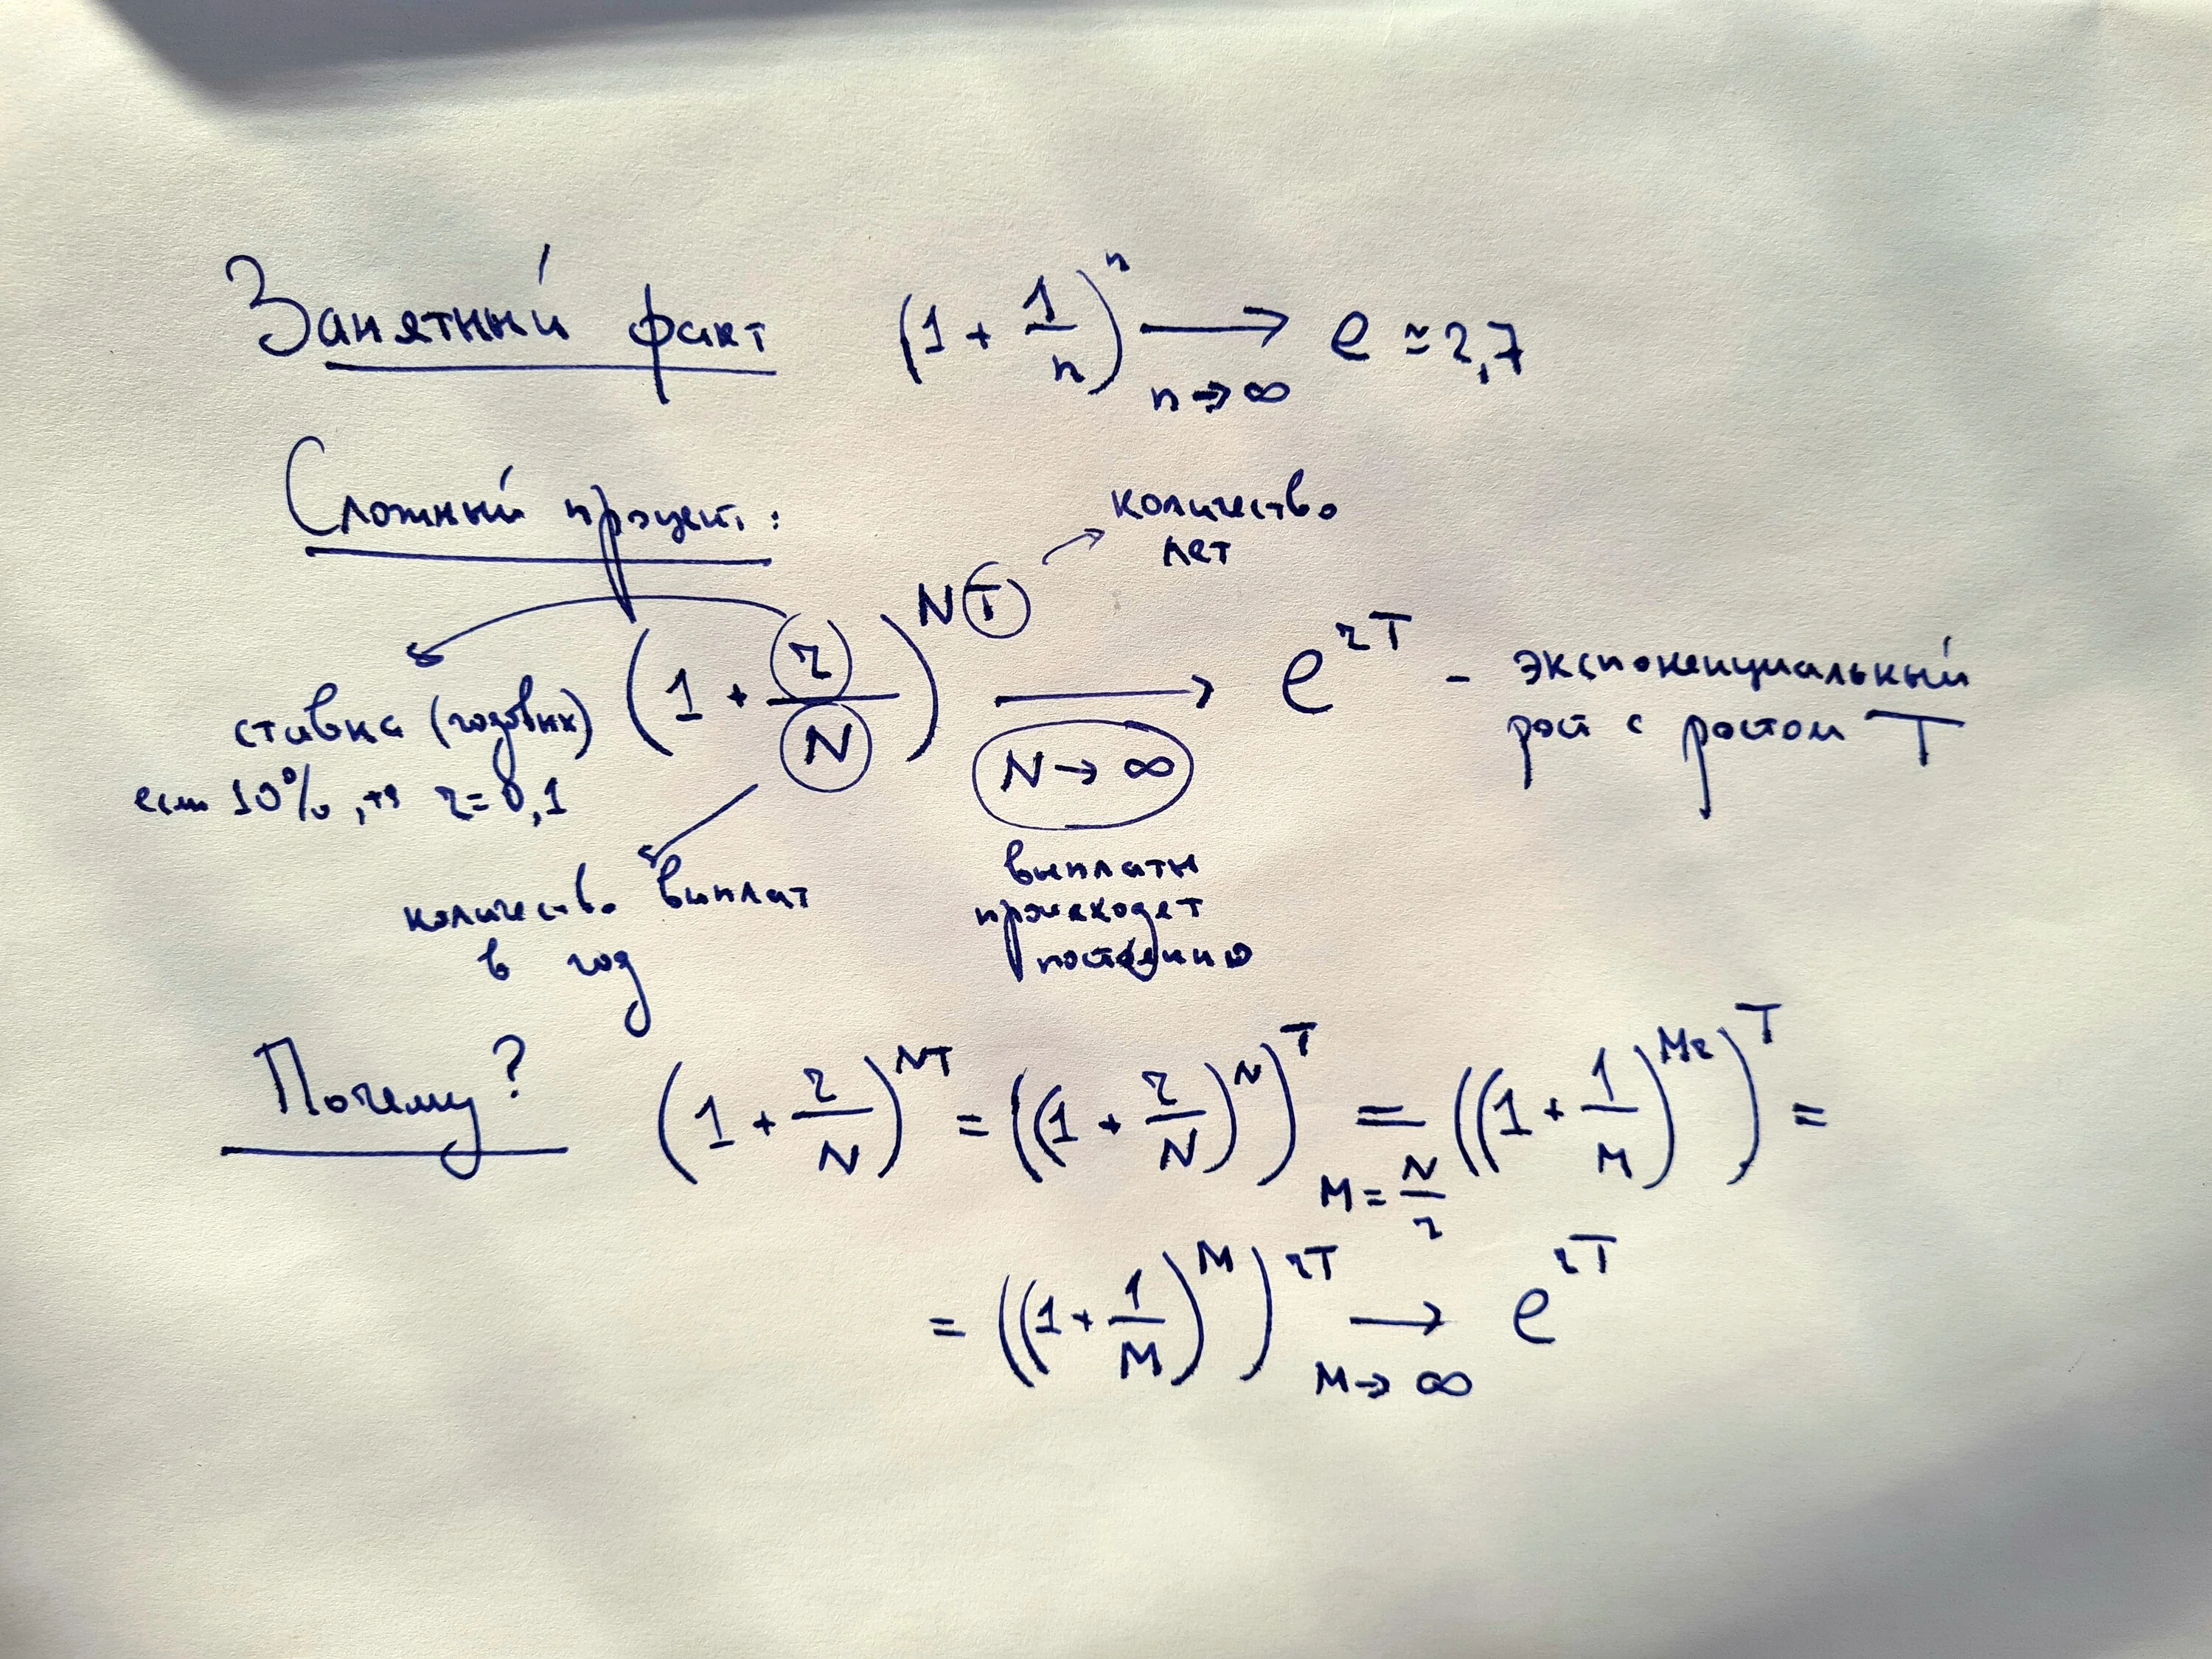 Занятный факт (1 + 1/n)^n → e ≃ 2,7
n→∞
Сложный процент:
количество
лет
(1 + r/N)^NT → e^rT - экспоненциальный
рост с ростом T
N→∞
ставка (годовых)
если 10%, то r=0,1
количество выплат
в год
выплаты
происходят
постоянно
Почему? (1 + r/N)^NT = ((1 + r/N)^N)^T = ((1 + 1/M)^Mr)^T =
M = N/r
= ((1 + 1/M)^M)^rT → e^rT
M→∞